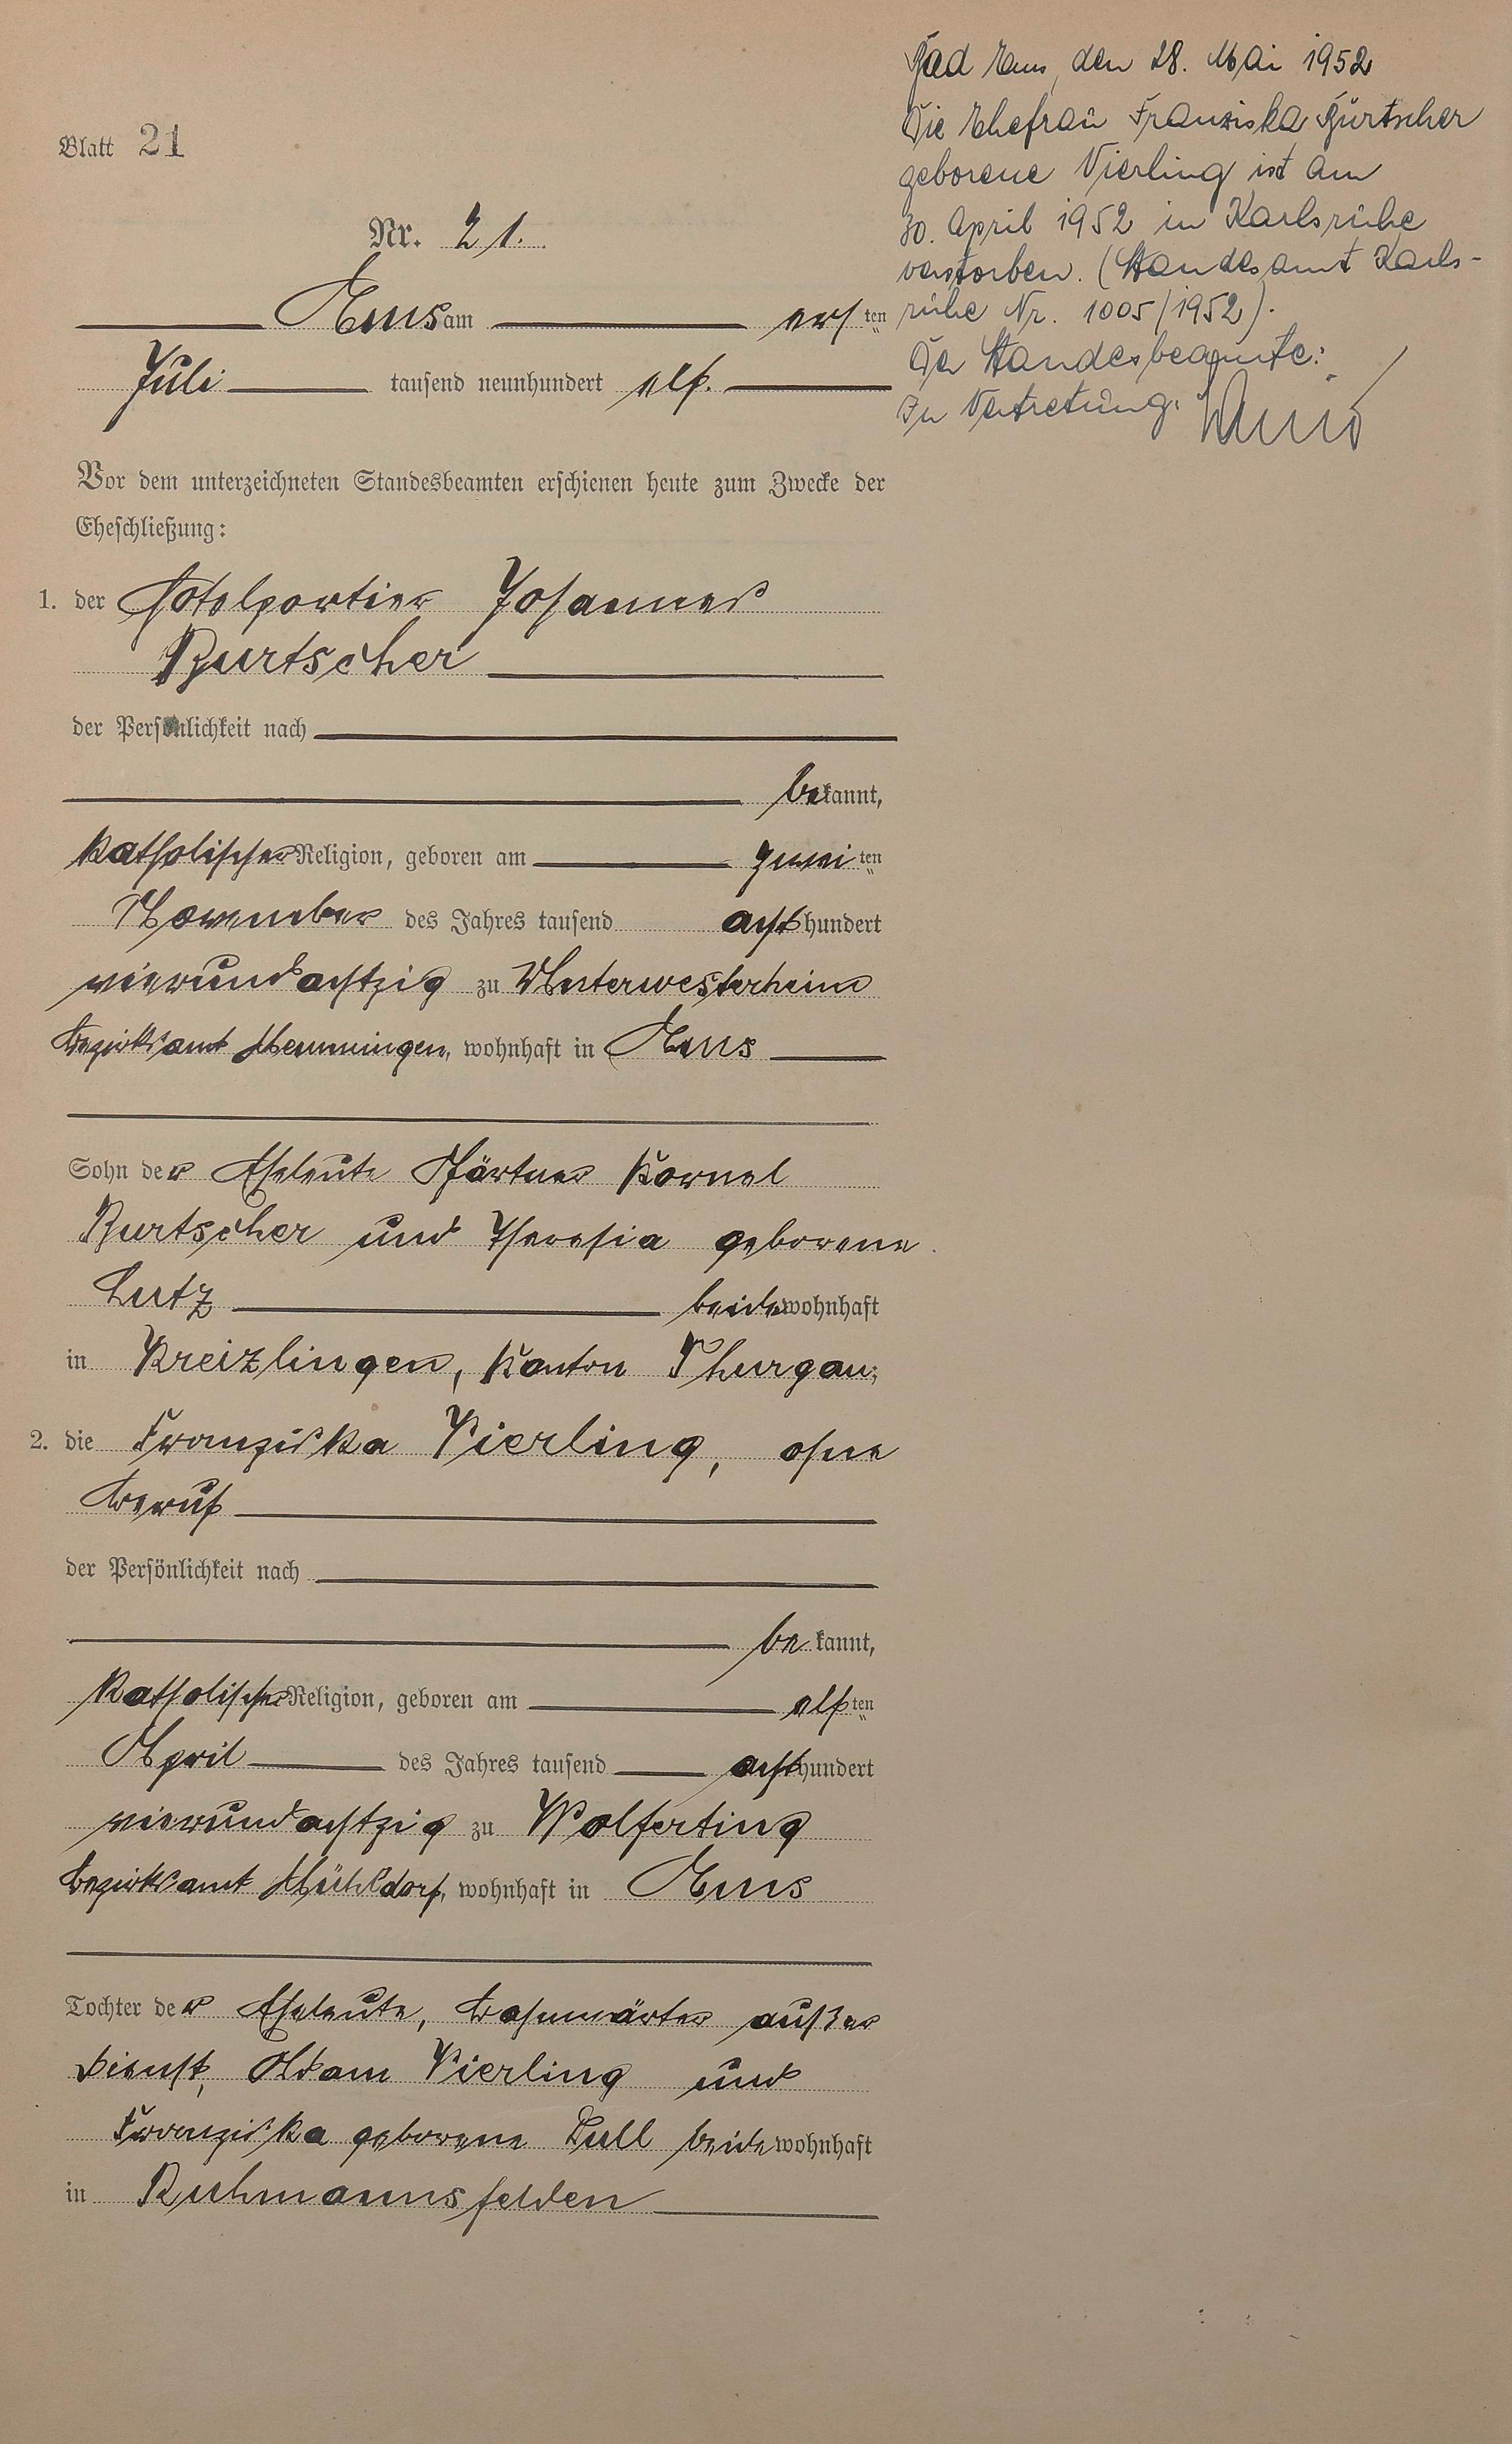 Blatt 21
Nr. 21.
Ems am ersten
Juli tausend neunhundert elf.
Vor dem unterzeichneten Standesbeamten erschienen heute zum Zwecke der
Eheschließung:
1. der Hotelportier Johannes
Burtscher
der Persönlichkeit nach
bekannt,
katholischer Religion, geboren am zweiten
November des Jahres tausend achthundert
vierundachtzig zu Unterwesterheim
Bezirksamt Memmingen, wohnhaft in Ems
Sohn der Eheleute Pförtner Kornel
Burtscher und Theresia geborene
Lutz beide wohnhaft
in Kreizlingen, Kanton Thurgau;
2. die Franziska Vierling, ohne
Beruf
der Persönlichkeit nach
bekannt,
katholischer Religion, geboren am elften
April des Jahres tausend achthundert
vierundachtzig zu Wolferting
Bezirksamt Mühldorf, wohnhaft in Ems
Tochter der Eheleute, Bahnwärter außer
Dienst, Adam Vierling und
Franziska geborene Lull beide wohnhaft
in Ruhmannsfelden
Bad Ems, den 28. Mai 1952
Die Ehefrau Franziska Burtscher
geborene Vierling ist am
30. April 1952 in Karlsruhe
verstorben. (Standesamt Karls-
ruhe Nr. 1005/1952).
Der Standesbeamte:
In Vertretung: